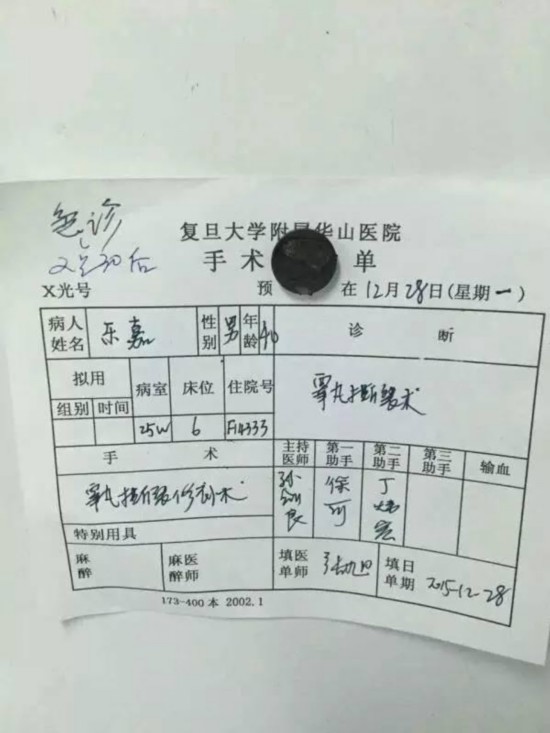 急诊
22:30后
复旦大学附属华山医院
手术 单
X光号 预 在12月28日(星期一)
病人姓名 乐嘉 性别 男 年龄 40 诊断
拟用 病室 床位 住院号
组别 时间 25W 6 F14333
手术 主持医师 第一助手 第二助手 第三助手 输血
徐可 丁
特别用具
麻醉 麻醉医师 填单医师 张旭 填单日期 2015-12-28
173-400本 2002.1